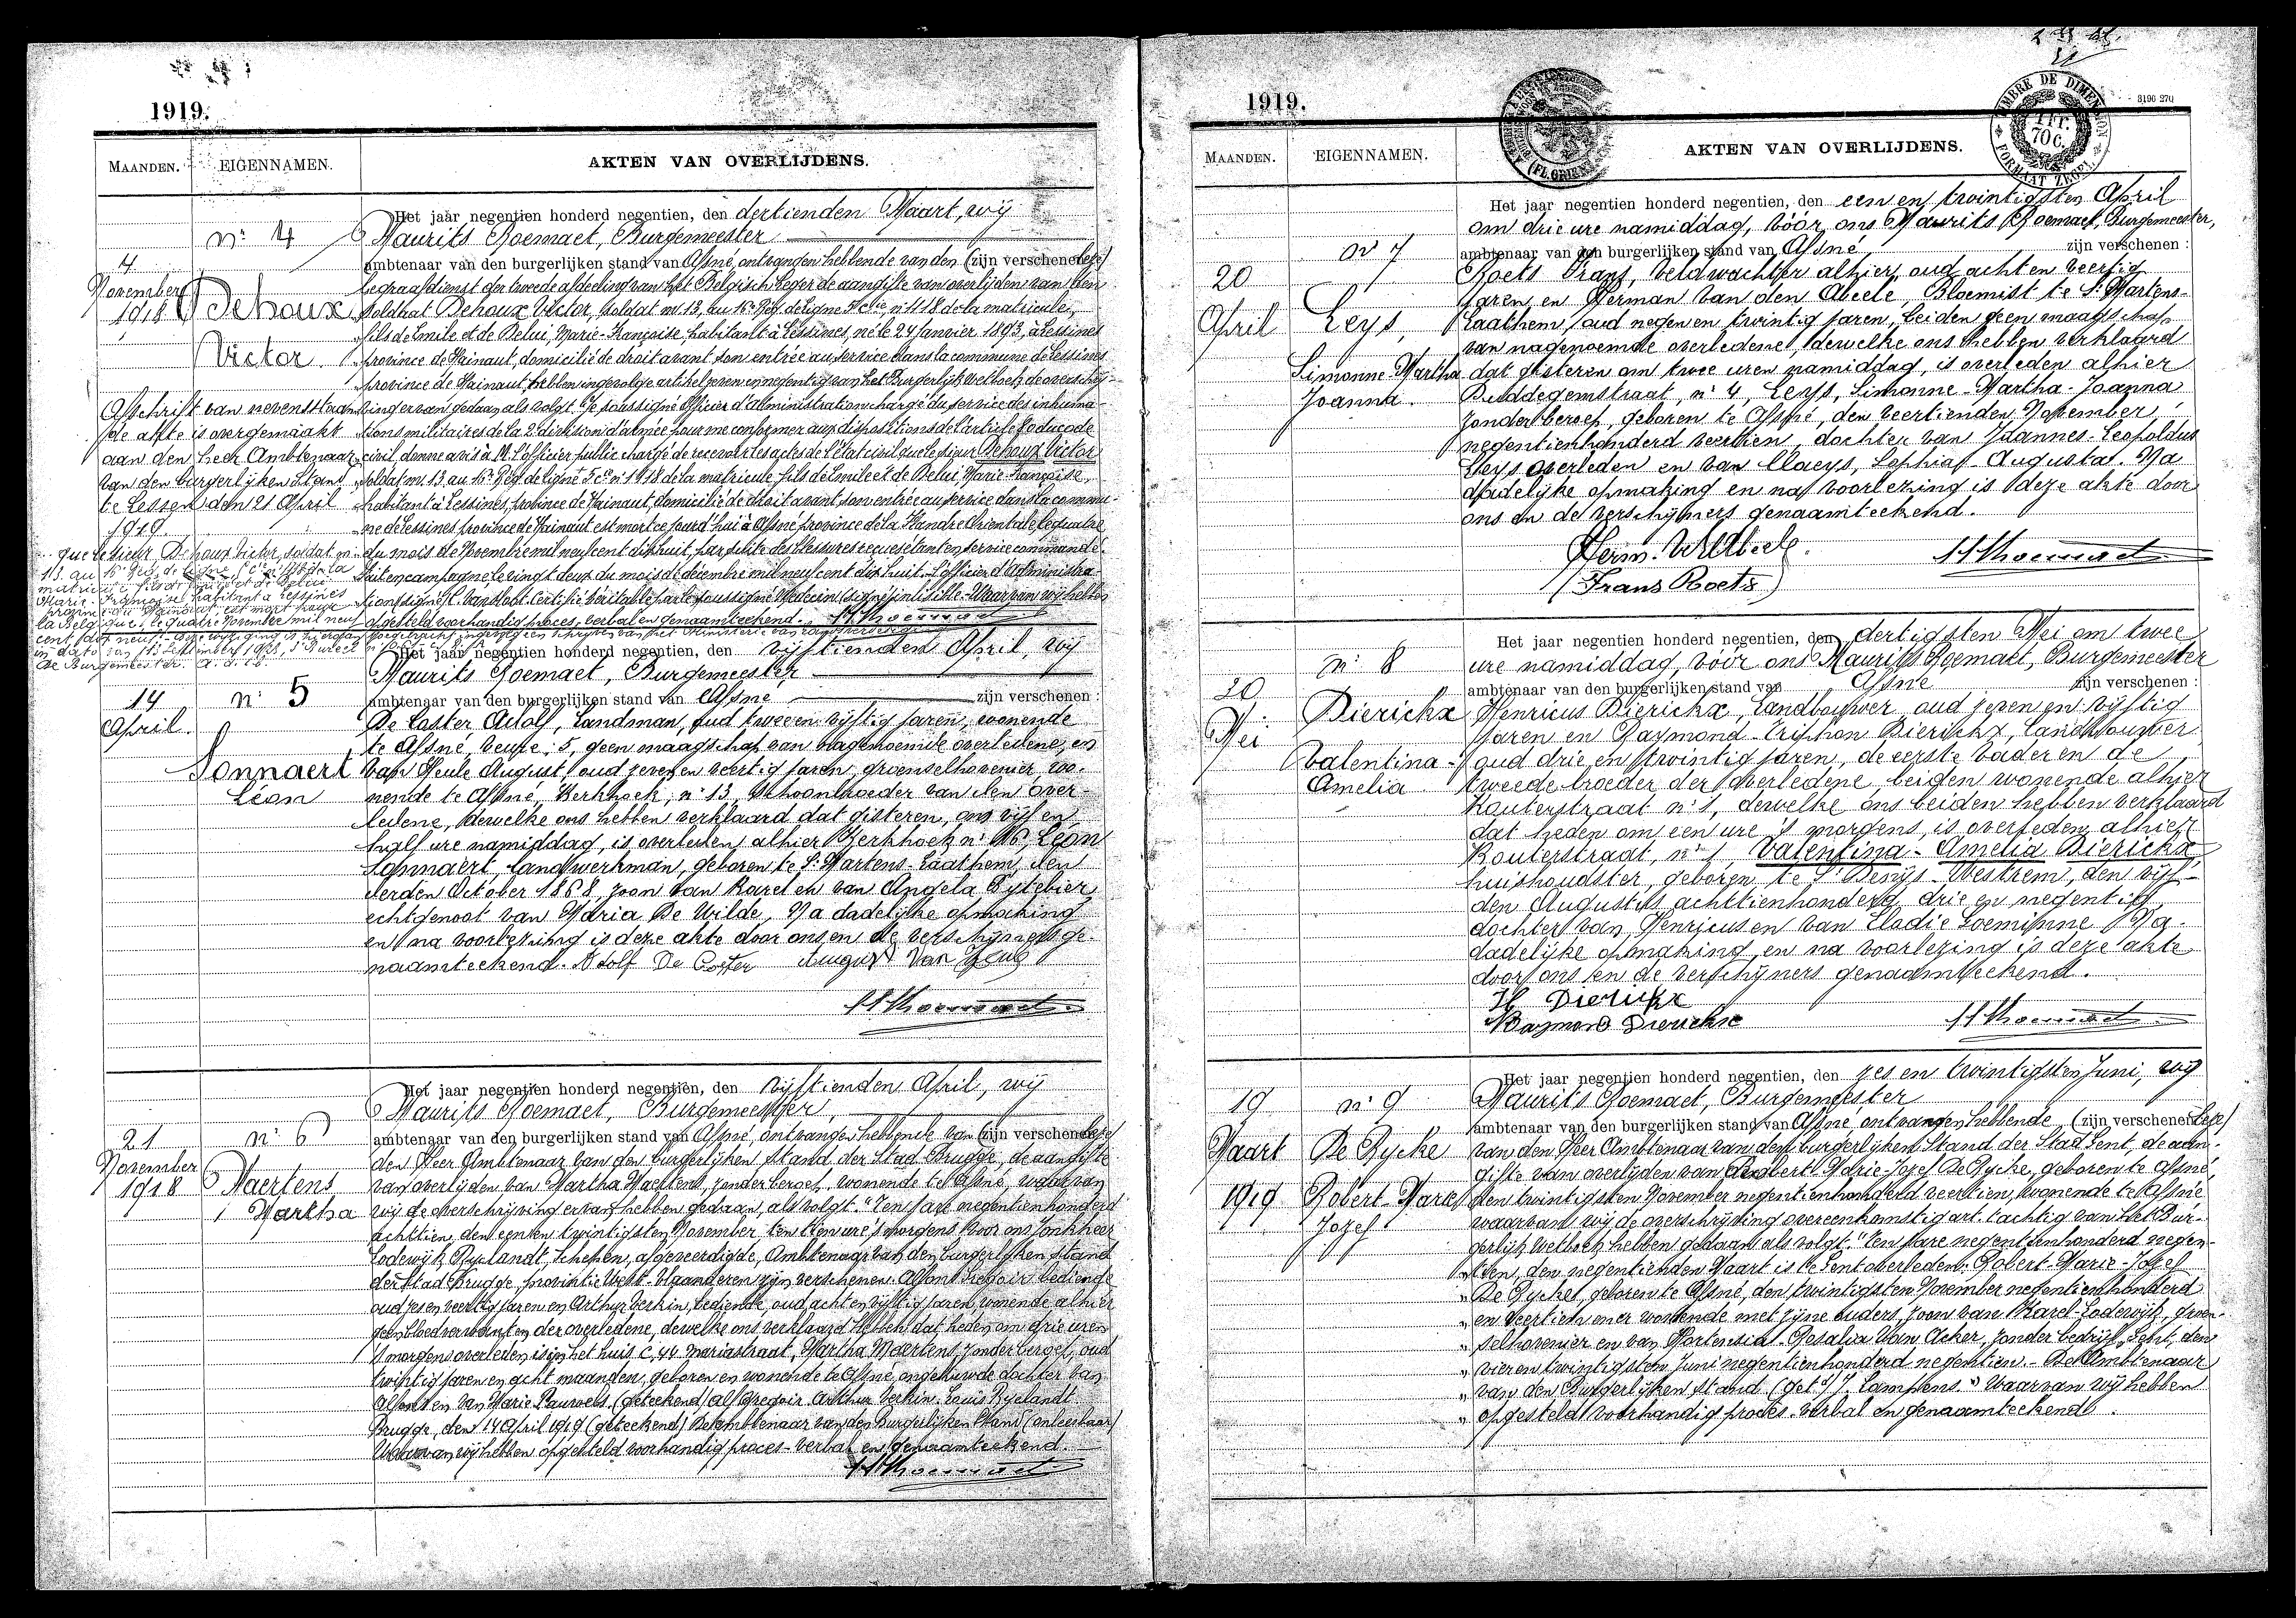 1919.
MAANDEN. EIGENNAMEN. AKTEN VAN OVERLIJDENS.
Het jaar negentien honderd negentien, den dertienden Maart, wij
nr 4 Maurits Roemaet, Burgemeester
4 ambtenaar van den burgerlijken stand van Afsné, ontvangen hebbende van den (zijn verschenen
November begraafdienst der tweede afdeeling van het Belgisch Leger de aangifte van overlijden van den
1918 Dehoux soldaat Dehoux Victor, soldat mr 13, au 16e Rég. de ligne 5e Cie, n° 118 de la matricule,
fils de Emile et de Belui, Marie-Françoise, habitant à Lessines, né le 24 Janvier 1893, à Lessines
Victor. province de Hainaut, domicilié de droit avant son entrée au service dans la commune de Lessines
province de Hainaut, hebben ingevolge artikel zeven en negentig van het Burgerlijk wetboek de overschrij-
Afschrift van nevensstaan- ving ervan gedaan als volgt: "Je soussigné Officier d'Administration chargé du service des inhuma-
de akte is overgemaakt tions militaires de la 2e division d'armée pour me conformer aux dispositions de l'article du code
aan den heer Ambtenaar civil, donne avis à M. l'officier public chargé de recevoir les actes de l'état civil que le sieur Dehoux Victor
van den burgerlijken Stand soldat mr 13 au 16e Rég. de ligne 5e Cie n° 118 de la matricule fils de Emile et de Belui Marie-Françoise,
te Lessen den 21 April habitant à Lessines, province de Hainaut, domicilié de droit avant son entrée au service dans la commu-
1919. ne de Lessines province de Hainaut est mort ce jourd'hui à Afsné province de la Flandre Orientale le quatre
que le sieur Dehoux Victor, soldat mr du mois de Novembre mil neuf cent dix huit, par suite des blessures reçues étant en service commandé.
13. au 16e Rég. de ligne 5e Cie n° 118 de la Fait en campagne, le vingt deux du mois de décembre mil neuf cent dix huit. L'officier d'Administra-
matricule fils de Emile et de Belui
Marie-Françoise habitant à Lessines tion (signé) Certifié véritable par le soussigné Médecin (signé) Waarvan wij hebben
province de Hainaut, est mort pour
la Belgique, le quatre Novembre mil neuf opgesteld voorhandig proces-verbal en genaamteekend.
cent dix neuf.
in dato van 11 September 1923,
De Burgemeester.
Het jaar negentien honderd negentien, den vijftienden April, wij
Maurits Roemaet, Burgemeester
14 n° 5 ambtenaar van den burgerlijken stand van Afsné zijn verschenen :
April. De Coster Adolf, Landman, oud twee en vijftig jaren, wonende
te Afsné, Veure, 5, geen maagschap van nagenoemde overledene, en
Sonnaert Van Heule August, oud zeven en veertig jaren, groenselhovenier, wo-
Léon nende te Afsné, Kerkhoek, n° 13, schoonbroeder van den over-
ledene, dewelke ons hebben verklaard dat gisteren, om vijf en
half ure namiddag, is overleden alhier Kerkhoek n° 16, Léon
Sonnaert, landwerkman, geboren te St Martens-Laathem, den
derden October 1868, zoon van Karel en van Angela Eytebier,
echtgenoot van Maria De Wilde, Na dadelijke opmaking
en na voorlezing is deze akte door ons en de verschijners ge-
naamteekend. Adolf De Coster August Van Heule
Het jaar negentien honderd negentien, den vijftienden April, wij
Maurits Roemaet, Burgemeester,
21 n° 6 ambtenaar van den burgerlijken stand van Afsné, ontvangen hebbende van (zijn verschenen
November den Heer Ambtenaar van den burgerlijken stand der Stad Brugge, de aangifte
1918 Maertens van overlijden van Martha Maertens, zonder beroep, wonende te Afsné, waarvan
Martha wij de overschrijving ervan hebben gedaan, als volgt: "Ten jare negentienhonderd
achttien, den een en twintigsten November, ten tien ure 's morgens voor ons Jonkheer
Lodewijk Ryelandt, Schepen, afgeveerdigde, Ambtenaar van den burgerlijken stand
der stad Brugge, provintie West-Vlaanderen zijn verschenen: Alfons Gregoir bediende
oud zes en veertig jaren en Arthur Verkin, bediende, oud acht en vijftig jaren wonende alhier
geen bloedverwanten der overledene, dewelke ons verklaard hebben dat heden om drie uren
's morgens overleden is in het huis C, 44 Mariastraat, Martha Maertens, zonder beroep, oud
twintig jaren en acht maanden, geboren en wonende te Afsné, ongehuwde dochter van
Alfons en van Marie Pauwels. (geteekend) Alf. Gregoir Arthur Verkin. Louis Ryelandt.
Brugge, den 14 April 1919 (geteekend) De Ambtenaar van den Burgerlijken Stand (onleesbaar)
Waarvan wij hebben opgesteld voorhandig proces-verbal en genaamteekend.
1919.
TIMBRE DE DIMENSION
1 Fr.
70 c.
FORMAAT ZEGEL
3196 270
MAANDEN. EIGENNAMEN. AKTEN VAN OVERLIJDENS.
Het jaar negentien honderd negentien, den een en twintigsten April
om drie ure namiddag, vóór ons Maurits Roemaet, Burgemeester,
n° 7 ambtenaar van den burgerlijken stand van Afsné zijn verschenen :
20 Roets Frans, veldwachter alhier, oud acht en veertig
jaren en Herman Van den Abeele, Bloemist te St Martens-
April Leys, Laathem, oud negen en twintig jaren, beiden geen maagschap
van nagenoemde overledene, dewelke ons hebben verklaard
Simonne-Martha- dat gisteren om twee uren namiddag, is overleden alhier
Joanna. Buddegemstraat, n° 4, Leys, Simonne-Martha-Joanna
zonder beroep, geboren te Afsné, den veertienden November,
negentienhonderd veertien, dochter van Joannes-Leopoldus
Leys overleden en van Claeys, Sophia-Augusta. Na
dadelijke opmaking en na voorlezing is deze akte door
ons en de verschijners genaamteekend.
Herm. V. d Abeele.
(Frans Roets)
Het jaar negentien honderd negentien, den dertigsten Mei om twee
n° 8 ure namiddag, vóór ons Maurits Roemaet, Burgemeester
30 ambtenaar van den burgerlijken stand van Afsné zijn verschenen :
Mei Dierickx Henricus Dierickx, Landbouwer, oud zeven en vijftig
jaren en Raymond-Triphon Dierickx, landbouwer
Valentina- oud drie en twintig jaren, de eerste vader en de
Amelia tweede broeder der overledene, beiden wonende alhier
Kouterstraat n° 1, dewelke ons beiden hebben verklaard
dat heden om een ure 's morgens, is overleden alhier
Kouterstraat, n° 1, Valentina-Amelia Dierickx,
huishoudster, geboren te St Denijs-Westrem, den vijf-
den Augustus achttienhonderd drie en negentig,
dochter van Henricus en van Elodie Loeminne. Na
dadelijke opmaking en na voorlezing is deze akte
door ons en de verschijners genaamteekend.
H Dierickx
Raymond Dierickx
Het jaar negentien honderd negentien, den zes en twintigsten Juni, wij
19 n° 9 Maurits Roemaet, Burgemeester
ambtenaar van den burgerlijken stand van Afsné, ontvangen hebbende (zijn verschenen
Maart De Rycke van den Heer Ambtenaar van den burgerlijken Stand der Stad Gent, de aan-
gifte van overlijden van Robert-Marie-Jozef De Rycke, geboren te Afsné
1919 Robert-Marie- den twintigsten November negentienhonderd veertien, wonende te Afsné
Jozef waarvan wij de overschrijving overeenkomstig art. tachtig van het Bur-
gerlijk Wetboek hebben gedaan als volgt: "Ten jare negentienhonderd negen-
" tien, den negentienden Maart is te Gent overleden: Robert-Marie-Jozef
" De Rycke, geboren te Afsné, den twintigsten November negentienhonderd
" en veertien en er wonende met zijne ouders, zoon van Karel-Lodewijk, groen-
" selhovenier en van Hortensia-Rosalia Van Acker, zonder bedrijf. Gent, den
" vier en twintigsten Juni negentienhonderd negentien - De Ambtenaar
" van den Burgerlijken stand (get.d) J. Lampens." Waarvan wij hebben
" opgesteld voorhandig proces-verbal en genaamteekend.